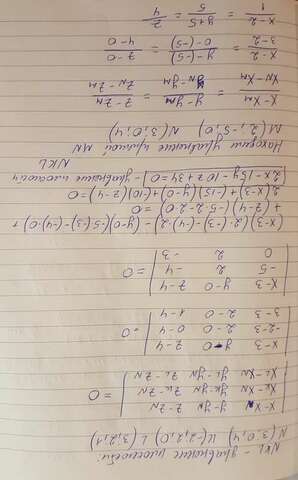 NKL - уравнение плоскости:
N(3,0,4) K(-2,2,0) L(3,2,1)
| x-x_N y-y_N z-z_N |
| x_K-x_N y_K-y_N z_K-z_N | = 0
| x_L-x_N y_L-y_N z_L-z_N |
| x-3 y-0 z-4 |
| -2-3 2-0 0-4 | = 0
| 3-3 2-0 1-4 |
| x-3 y-0 z-4 |
| -5 2 -4 | = 0
| 0 2 -3 |
(x-3)(2·(-3)-(-4)·2)-(y-0)(-5·(-3)-(-4)·0)+
+(z-4)(-5·2-2·0)=0
2(x-3)+(-15)(y-0)+(-10)(z-4)=0
2x-15y-10z+34=0 - уравнение плоскости
NKL
Находим уравнение прямой MN
M(2,-5,0) N(3,0,4)
(x-x_M)/(x_N-x_M) = (y-y_M)/(y_N-y_M) = (z-z_M)/(z_N-z_M)
(x-2)/(3-2) = (y-(-5))/(0-(-5)) = (z-0)/(4-0)
(x-2)/1 = (y+5)/5 = z/4